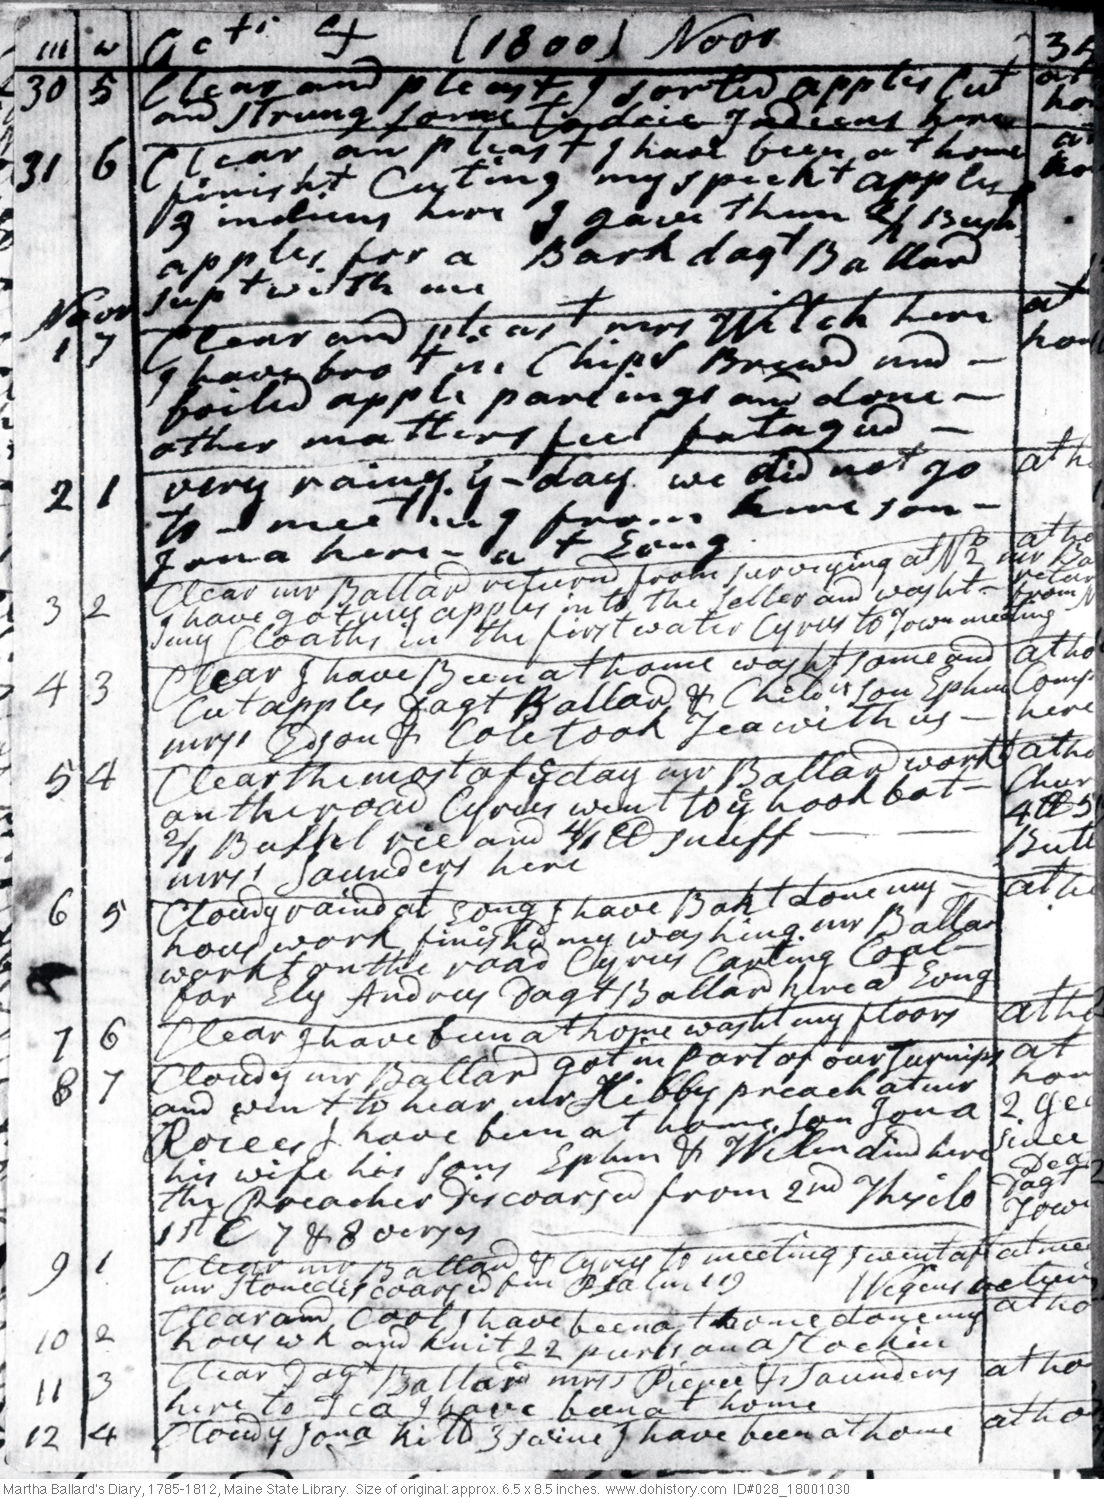 m w Oct & (1800) Novr 34
30 5 Clear and pleast I sorted apples Cut at
and strung some to drie Indiens here hom
31 6 Clear an pleast I have been at home at
finisht Cuting my speckt apples hom
3 indiens here I gave them 1/2 Bush
apples for a Bark dagt Ballard
supt with me
Novr
1 7 Clear and pleast mrs Fitch here at
I have brot in Chips Brewd and – hom
boiled apple pareings and done –
other matters feel fatagud –
2 1 very rainy ÿ–day we did not go at ho
to meeting from here son –
Jona here – at Evng
3 2 Clear mr Ballard returnd from surveying at No 2 at ho
I have got my apples into the Seller and washt – mr Bal
my Cloaths in the first water Cyrus to Town meeting retur
from N
4 3 Clear I have Been at home washt some and at ho
Cut apples Dagt Ballard & Childn son Ephm Comp
mrss Edson & Cole took Tea with us – here
5 4 Clear the most of ÿ day mr Ballard workt at ho
on the road Cyrus went to ÿ hook bot –
2/1 Bushl rie and 4/1 lb snuff – — 4 lb
mrss Saunders here Butt
6 5 Cloudy raind at Evng I have Bakt done my – at ho
hous work finisht my washing. mr Ballard
workt on the road Cyrus Carting Coal –
for Ely Andrus Dagt Ballard here at Evng
7 6 Clear I have been at home washt my floors at ho
8 7 Cloudy mr Ballard got in part of our Turnips at
and went to hear mr Hibby preach at mr hom
I have been at home. son Jona 2 Gees
his wife his sons Ephm & Willm dind here
the Preacher Discoarsed from 2nd Thesilo Dagt
1st C 7 & 8 verses Town
9 1 Clear mr Ballard & Cyrus to meeting I went aft at mee
mr Stone discoarsed fm Psalm 119
10 2 Clear and Cool I have been at home done my at ho
hous wk and knit 22 purls on a Stockin
11 3 Clear Dagt Ballard mrss Pierce & Saunders at ho
here to Tea I have been at home
12 4 Cloudy Jona killd 3 swine I have been at home at ho
Martha Ballard's Diary, 1785-1812, Maine State Library. Size of original: approx. 6.5 x 8.5 inches. www.dohistory.com ID#028_18001030